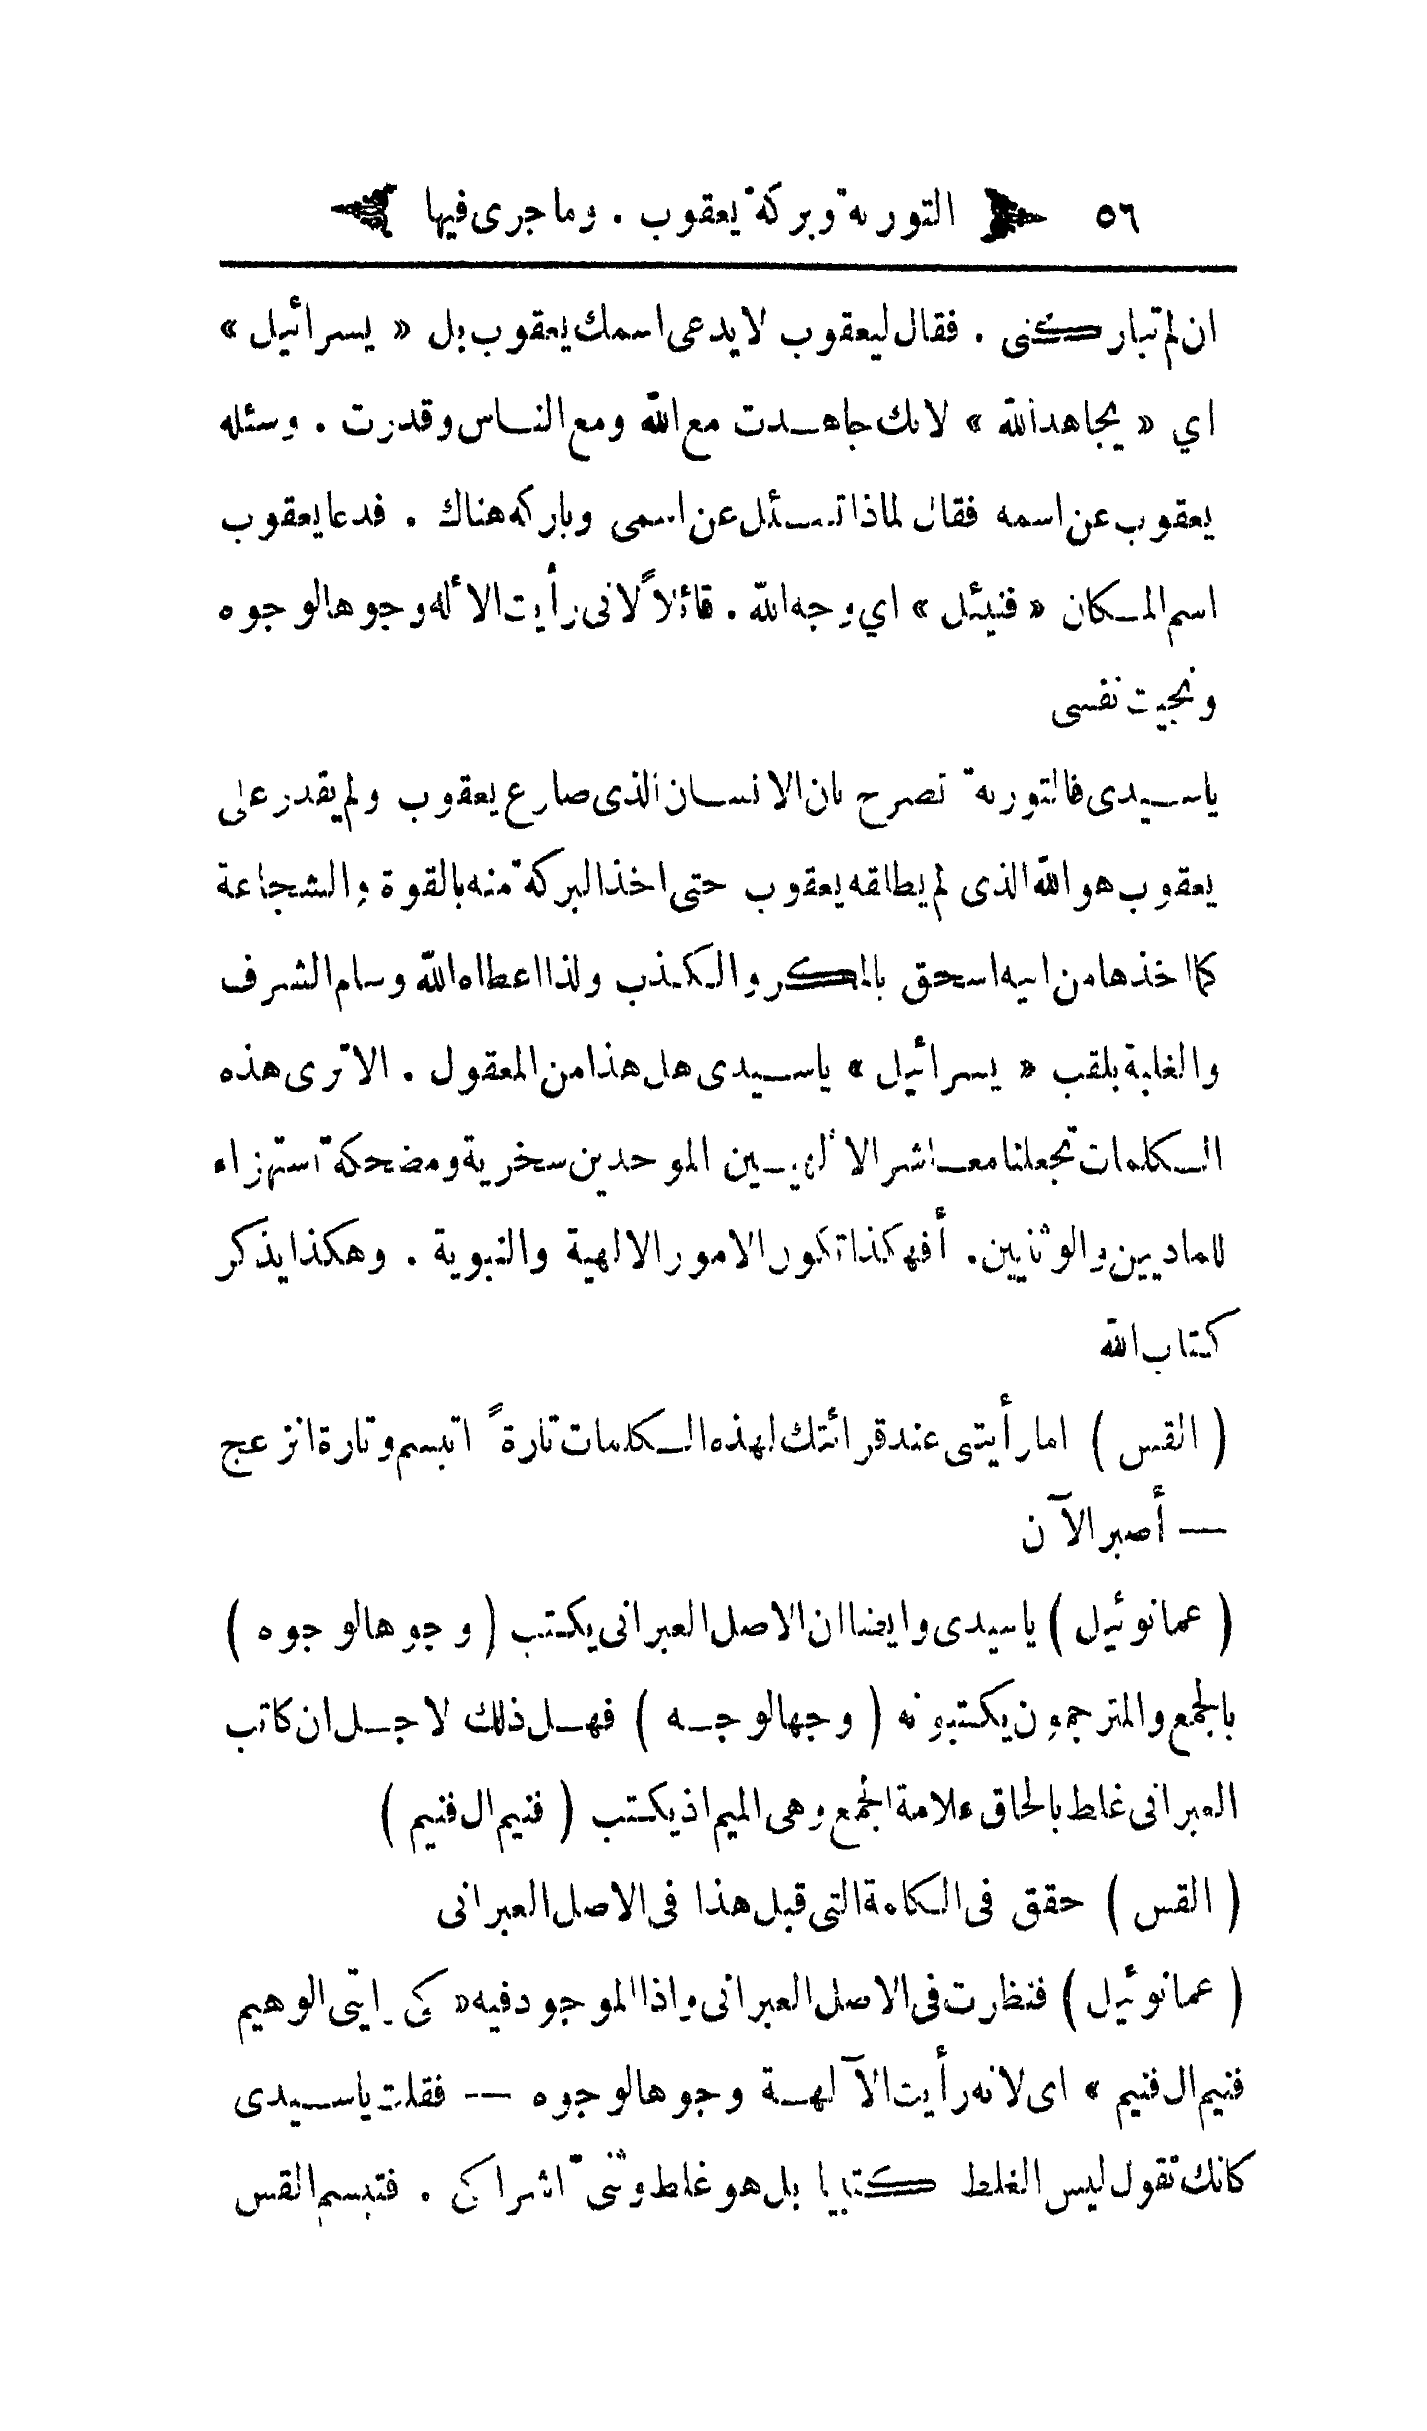 ٥٦ التورىة وبركة يعقوب . وما جرى فيها
ان لم تباركنى . فقال ليعقوب لا يدعى اسمك يعقوب بل « يسرائيل »
اي « يجاهد الله » لانك جاهدت مع الله ومع الناس وقدرت . وسئله
يعقوب عن اسمه فقال لماذا تسئل عن اسمى وباركه هناك . فدعا يعقوب
اسم المكان « فنيئل » اي وجه الله . قائلاً لانى رأيت الأله وجوها لوجوه
ونجيت نفسى
يا سيدى فالتورىة تصرح بان الانسان الذى صارع يعقوب ولم يقدر على
يعقوب هو الله الذى لم يطلقه يعقوب حتى اخذ البركة منه بالقوة والشجاعة
كما اخذها من ابيه اسحق بالمكر والكذب ولذا اعطاه الله وسام الشرف
والغلبة بلقب « يسرائيل » يا سيدى هل هذا من المعقول . الا ترى هذه
الكلمات تجعلنا معاشر الألهيين الموحدين سخرية ومضحكة استهزاء
للماديين والوثنيين . أفهكذا تكون الامور الالهية والنبوية . وهكذا يذكر
كتاب الله
( القس ) اما رأيتنى عند قرائتك لهذه الكلمات تارةً اتبسم وتارة انزعج
— أصبر الآن
( عمانوئيل ) يا سيدى وايضا ان الاصل العبرانى يكتب ( وجوها لوجوه )
بالجمع والمترجمون يكتبونه ( وجها لوجه ) فهل ذلك لاجل ان كاتب
العبرانى غلط بالحاق علامة الجمع وهى الميم اذ يكتب ( فنيم ال فنيم )
( القس ) حقق فى الكلمة التى قبل هذا فى الاصل العبرانى
( عمانوئيل ) فنظرت فى الاصل العبرانى واذا الموجود فيه « كى رايتى الوهيم
فنيم ال فنيم » اى لانه رأيت الآلهة وجوها لوجوه — فقلت يا سيدى
كانك تقول ليس الغلط كتبيا بل هو غلط وثنىّ اشراكى . فتبسم القس